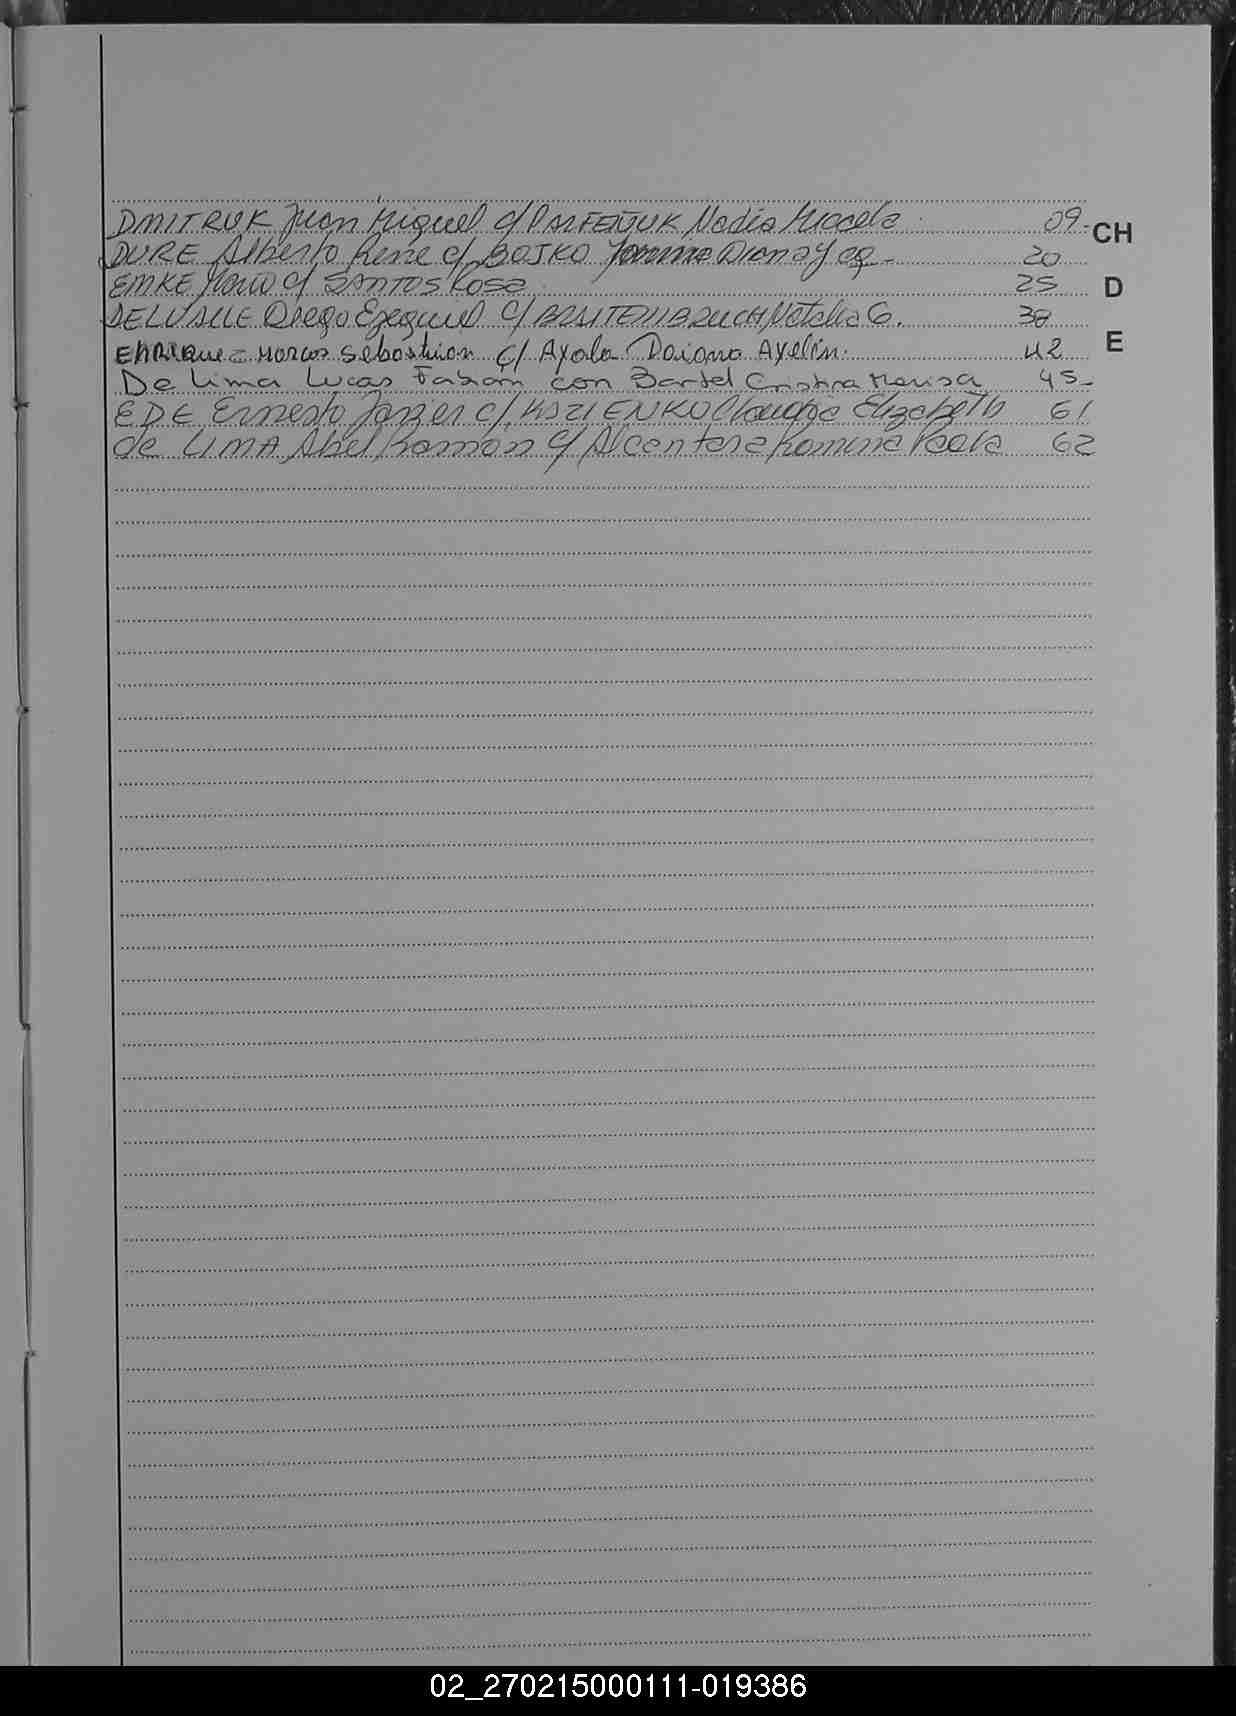 DMITRUK Juan Miguel c/ PARFENIUK Nadia Micaela 09.-
CH
DURE Alberto Rene c/ BOJKO Diana 20
EMKE Mario c/ SANTOS Rosa 25
D
DELVALLE Diego Ezequiel c/ BRAITEMBRUCH Natalia G. 38
Enrique Marcos Sebastian c/ Ayala Daiana Ayelin. 42
E
De Lima Lucas Fabian con Bartel Cristina Marisa 45-
EDE Ernesto Javier c/ Claudia Elizabeth 61
de LIMA Abel Ramon c/ Alcantara Romina Paola 62
02_270215000111-019386